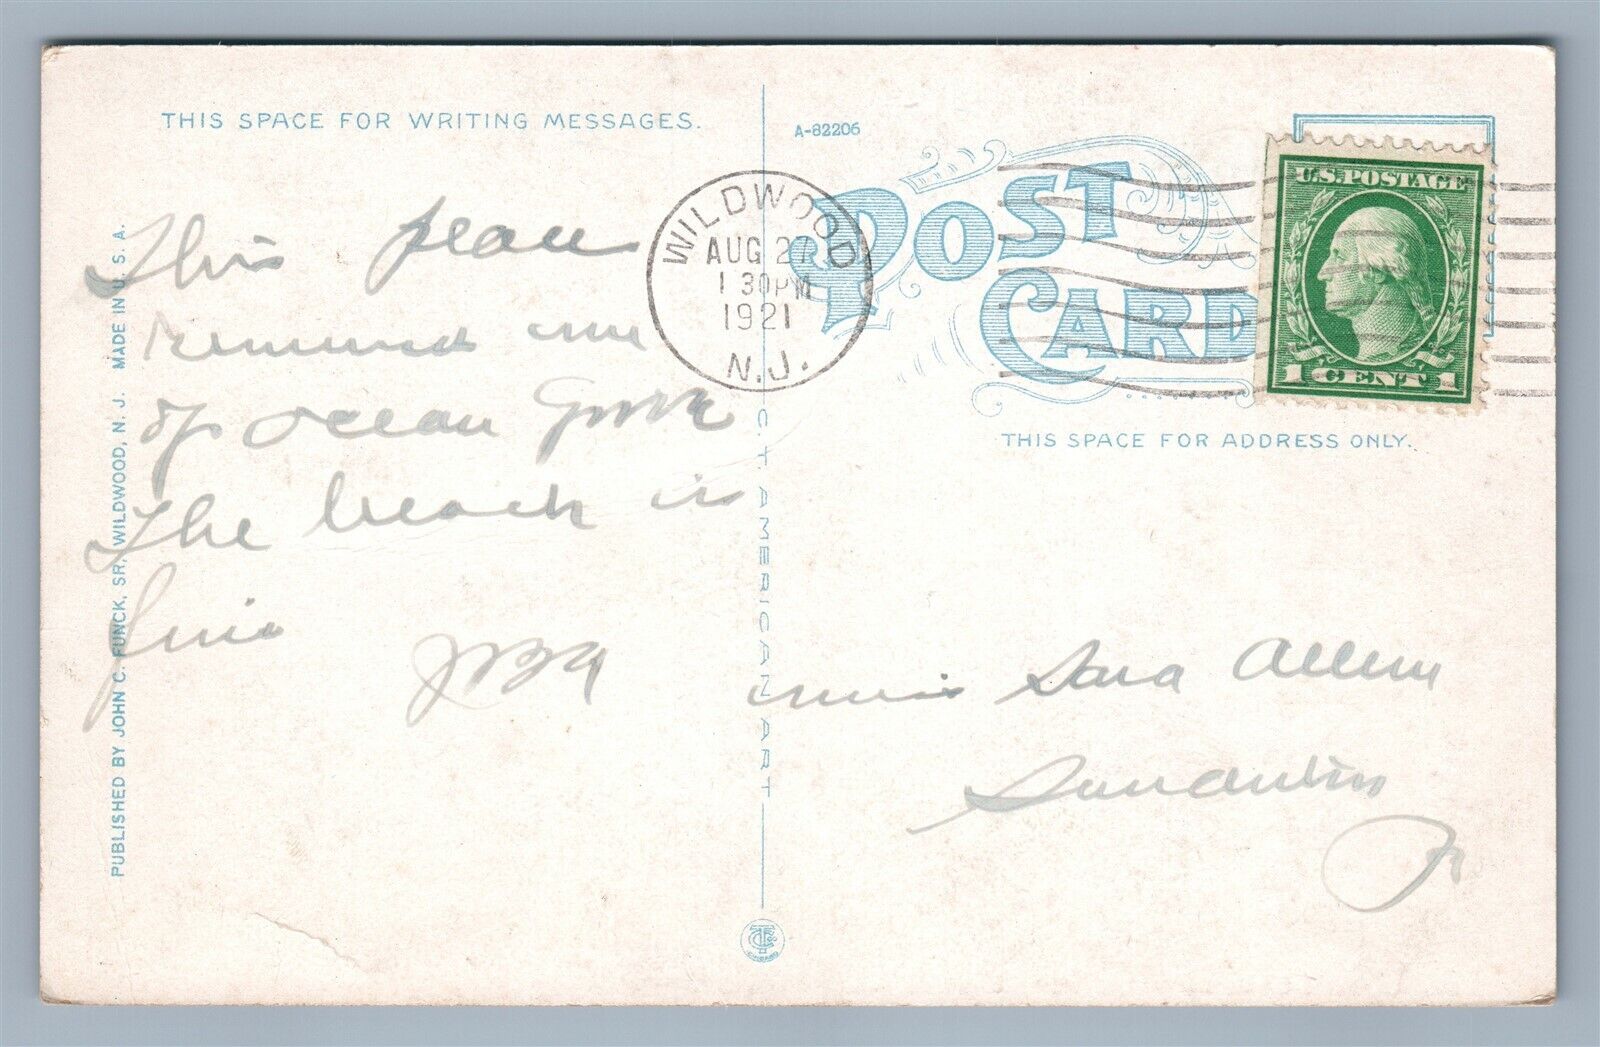 THIS SPACE FOR WRITING MESSAGES.
This place
reminds me
of ocean Grove
The beach is
fine
PUBLISHED BY JOHN C. FUNCK, SR., WILDWOOD, N. J. MADE IN U. S. A.
C. T. AMERICAN ART
A-82206
POST CARD
WILDWOOD
AUG 27
1 30PM
1921
N.J.
U.S. POSTAGE
1 CENT 1
THIS SPACE FOR ADDRESS ONLY.
miss Sara Allen
CHICAGO